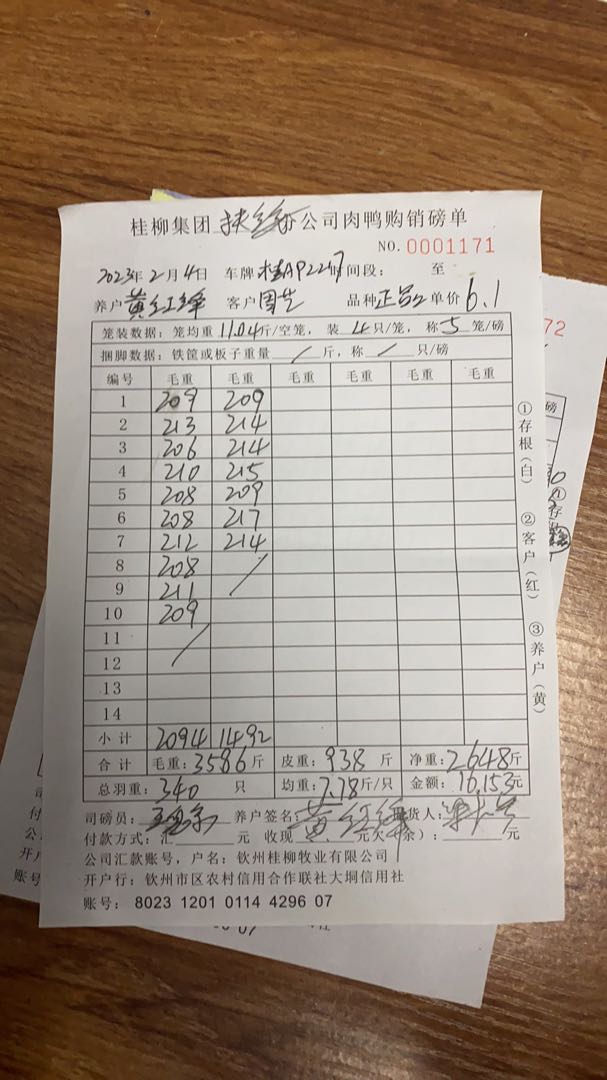 桂柳集团扶绥分公司肉鸭购销磅单
NO. 0001171
2023年2月4日 车牌桂AP2247时间段: 至
养户黄红锋 客户周生 品种正品2单价6.1
笼装数据:笼均重11.04斤/空笼, 装4只/笼, 称5笼/磅
捆脚数据:铁筐或板子重量/斤,称/只/磅
编号 毛重 毛重 毛重 毛重 毛重 毛重
1 209 209
2 213 214
3 206 214
4 210 215
5 208 209
6 208 217
7 212 214
8 208 /
9 211
10 209
11 /
12
13
14
小计 2094 1492
合计 毛重:3586斤 皮重:938斤 净重:2648斤
总羽重:340只 均重:7.78斤/只 金额:16,153元
司磅员: 养户签名:黄红锋 货人:
付款方式:汇 元 收现 元欠(余): 元
公司汇款账号,户名:钦州桂柳牧业有限公司
开户行:钦州市区农村信用合作联社大垌信用社
账号: 8023 1201 0114 4296 07
①存根(白)
②客户(红)
③养户(黄)
72
磅
①存
司
付款
公司
开户
账号